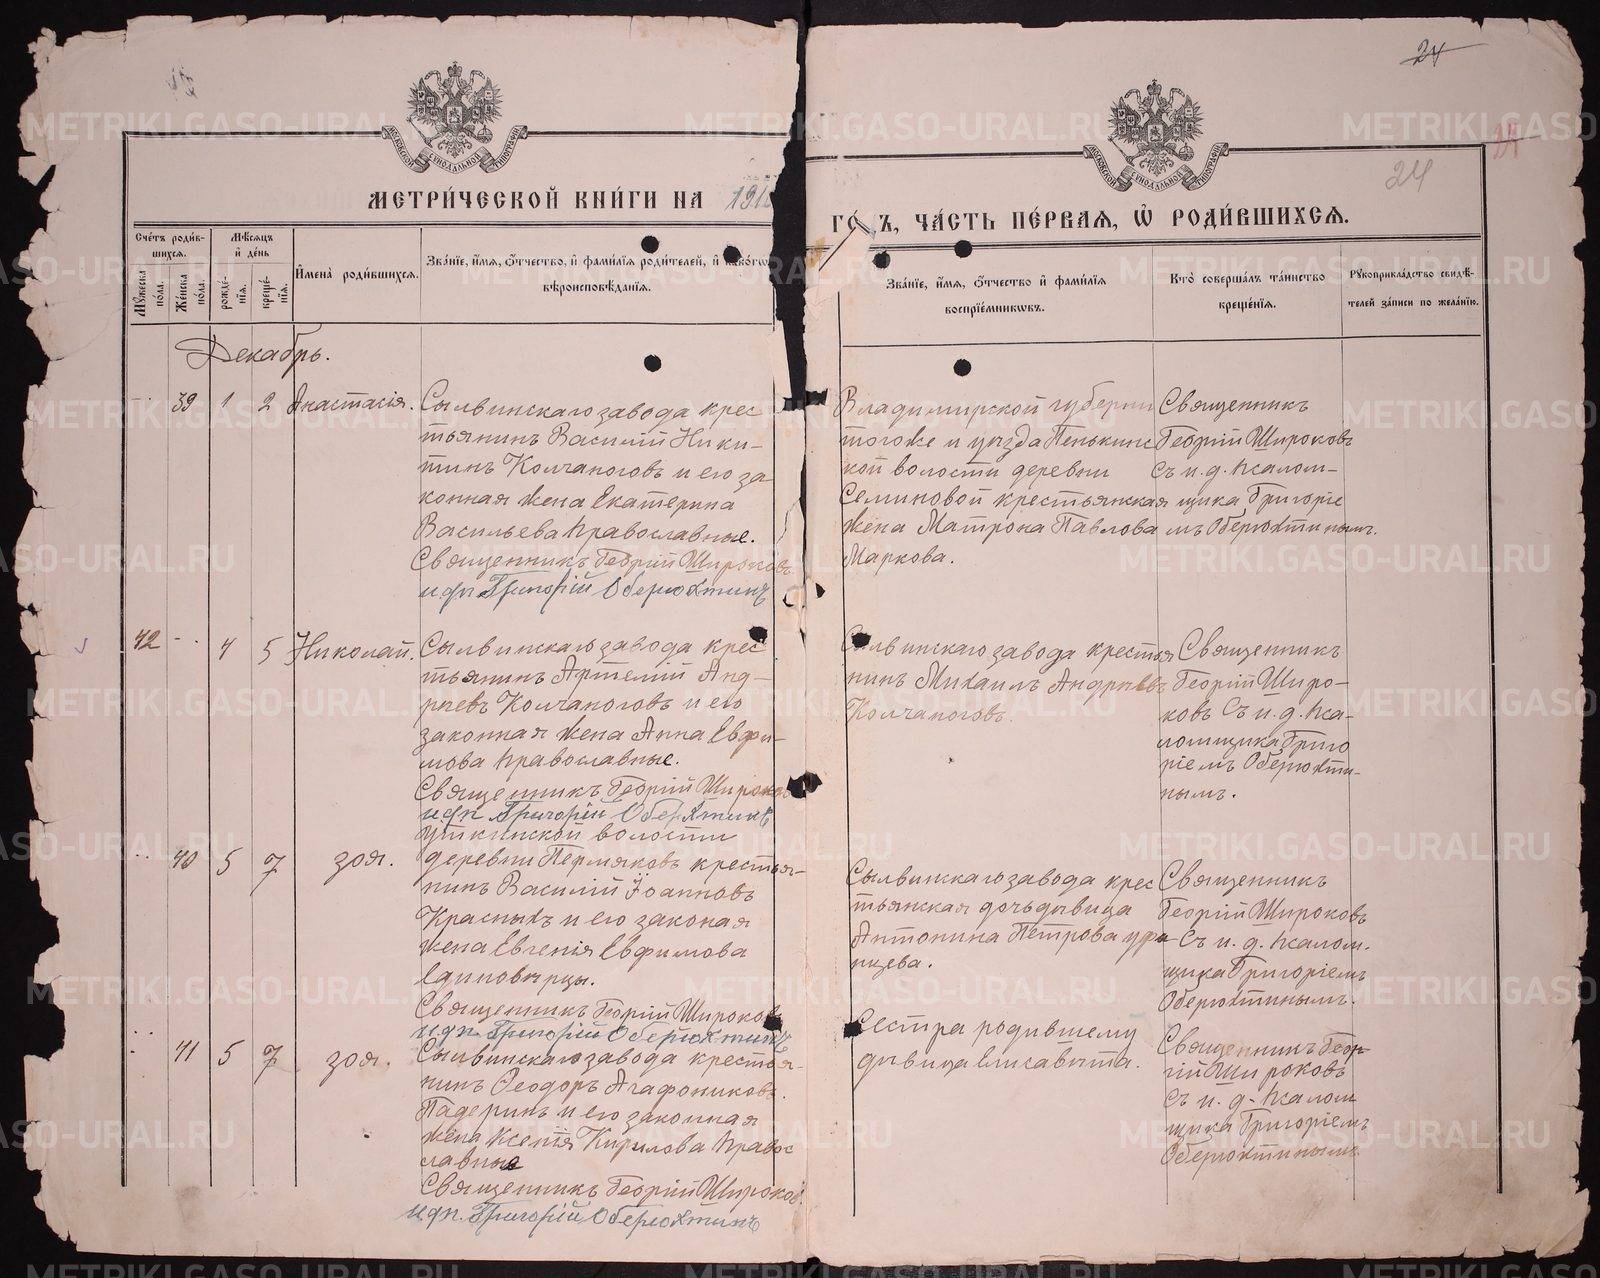 24
24
24
МЕТРИ́ЧЕСКОЙ КНИ́ГИ НА 191
ГО Ъ, ЧА́СТЬ ПЕ́РВАЯ, Ѡ҆ РОДИ́ВШИХСЯ.
Сче́тъ роди́в-
шихся.
Мѣ́сяцъ
и҆ де́нь
Мꙋ́жеска по́ла.
Же́нска по́ла.
рожде́-
нїя.
креще́-
нїя.
И҆мена̀ роди́вшихся.
Зва́нїе, и҆́мя, ѻ҆́тчество, и҆ фами́лїя роди́телей, и҆ како́гѡ
вѣроисповѣ́данїя.
Зва́нїе, и҆́мя, ѻ҆́тчество и҆ фами́лїя
воспрїе́мникѡвъ.
Кто̀ соверша́лъ та́инство
креще́нїя.
Рꙋкоприкла́дство свидѣ́-
телей за́писи по жела́нїю.
Декабрь.
39 1 2 Анастасія.
Сылвинскаго завода крес
тьянинъ Василій Ники-
тинъ Колчаноговъ и его за
конная жена Екатерина
Васильева Православные.
Священникъ Георгій Широковъ
и дп Григорій Оберюхтинъ
Владимирской губерни
тогоже и уезда Пенькинс
кой волости деревни
Семиновой крестьянская
жена Матрона Павлова
Маркова.
Священникъ
Георгій Широковъ
съ и. д. псалом-
щика Григоріе
мъ Оберюхтинымъ.
42 4 5 Николай.
Сылвинскаго завода крес
тьянинъ Артемій Анд-
реевъ Колчаноговъ и его
законная жена Анна Евфи-
мова Православные.
Священникъ Георгій Широков
и дп Григорій Оберюхтинъ
Сылвинскаго завода крестья
нинъ Михаилъ Андреевъ
Колчаноговъ.
Священникъ
Георгій Широ-
ковъ Съ и. д. Пса-
ломщика Григо
ріемъ Оберюхти-
нымъ.
40 5 7 Зоя.
Уткинской волости
деревни Пермяковъ крестья-
нинъ Василій Іоанновъ
Красныхъ и его законая
жена Евгенія Евфимова
Единоверцы.
Священникъ Георгій Широков
и дп. Григорій Оберюхтинъ
Сылвинскаго завода крес
тьянская дочь девица
Антонина Петрова
Священникъ
Георгій Широковъ
Съ и. д. псалом-
щика Григоріемъ
Оберюхтинымъ.
41 5 7 Зоя.
Сылвинскаго завода крестья-
нинъ Ѳеодоръ Агафониковъ.
Падеринъ и его законная
жена Ксенія Кирилова Правос
лавные
Священникъ Георгій Широков.
и дп. Григорій Оберюхтинъ
Сестра родившему
девица Елисавета.
Священникъ Геор-
гій Широковъ
Съ и. д. Псалом
щика Григоріемъ
Оберюхтинымъ
METRIKI.GASO-URAL.RU